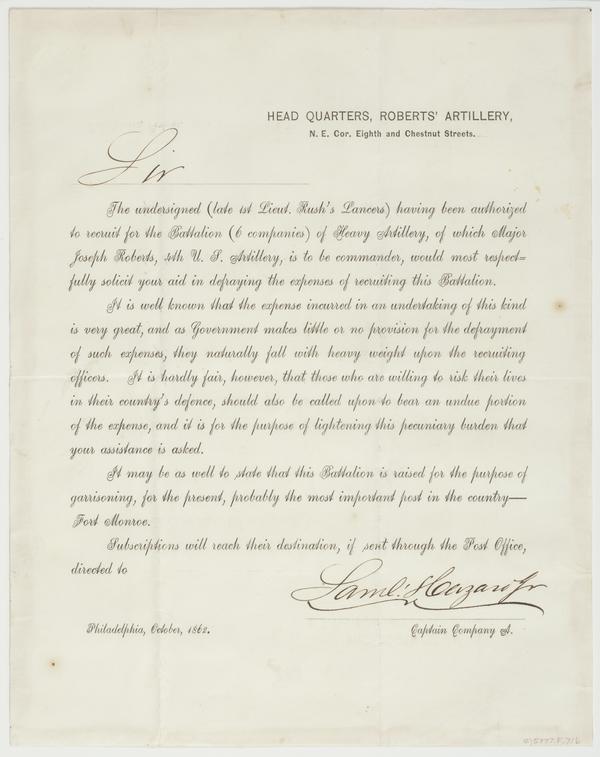 HEAD QUARTERS, ROBERTS' ARTILLERY,
N. E. Cor. Eighth and Chestnut Streets.
Sir
The undersigned (late 1st Lieut. Rush's Lancers) having been authorized
to recruit for the Battalion (6 companies) of Heavy Artillery, of which Major
Joseph Roberts, 4th U. S. Artillery, is to be commander, would most respect=
fully solicit your aid in defraying the expenses of recruiting this Battalion.
It is well known that the expense incurred in an undertaking of this kind
is very great, and as Government makes little or no provision for the defrayment
of such expenses, they naturally fall with heavy weight upon the recruiting
officers. It is hardly fair, however, that those who are willing to risk their lives
in their country's defence, should also be called upon to bear an undue portion
of the expense, and it is for the purpose of lightening this pecuniary burden that
your assistance is asked.
It may be as well to state that this Battalion is raised for the purpose of
garrisoning, for the present, probably the most important post in the country—
Fort Monroe.
Subscriptions will reach their destination, if sent through the Post Office,
directed to
Saml. Hazard Jr
Philadelphia, October, 1862.
Captain Company A.